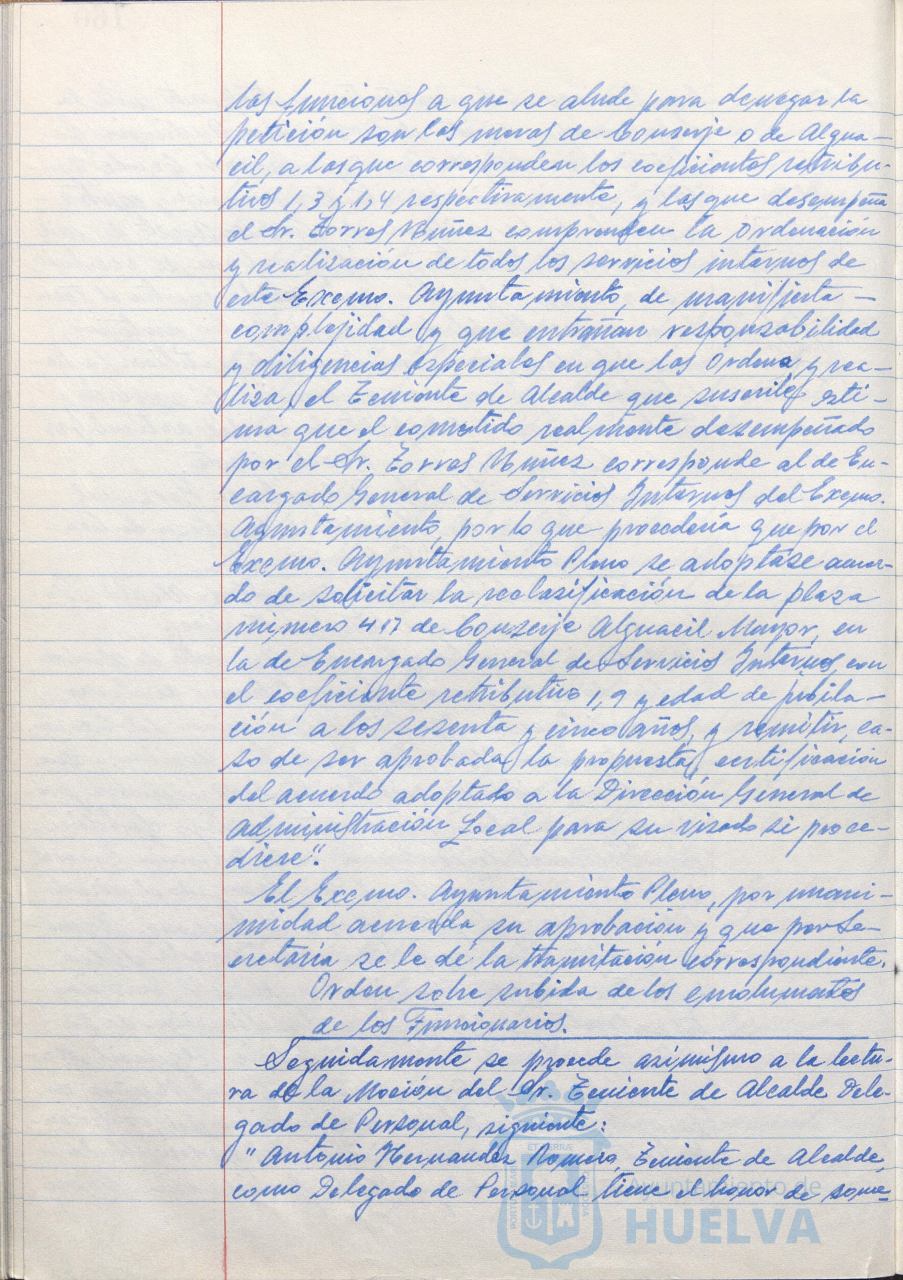 las funciones a que se alude para denegar la
petición son las meras de Conserje o de Algua-
cil, a las que corresponden los coeficientes retribu-
tivos 1,3 y 1,4 respectivamente, y las que desempeña
el Sr. Torres Núñez comprenden la ordenación
y realización de todos los servicios internos de
este Excmo. Ayuntamiento, de manifiesta -
complejidad y que entrañan responsabilidad
y diligencias especiales en que las ordena y rea-
liza, el Teniente de Alcalde que suscribe esti-
ma que el cometido realmente desempeñado
por el Sr. Torres Núñez corresponde al de En-
cargado General de Servicios Internos del Excmo.
Ayuntamiento, por lo que procedería que por el
Excmo. Ayuntamiento Pleno se adoptase acuer-
do de solicitar la reclasificación de la plaza
número 417 de Conserje Alguacil Mayor, en
la de Encargado General de Servicios Internos, con
el coeficiente retributivo 1,9 y edad de jubila-
ción a los sesenta y cinco años, y remitir, ca-
so de ser aprobada la propuesta, certificación
del acuerdo adoptado a la Dirección General de
Administración Local para su visado si proce-
diere".
El Excmo. Ayuntamiento Pleno, por unani-
midad acuerda su aprobación y que por Se-
cretaría se le dé la tramitación correspondiente.
Orden sobre subida de los emolumentos
de los Funcionarios.
Seguidamente se procede asimismo a la lectu-
ra de la Moción del Sr. Teniente de Alcalde Dele-
gado de Personal, siguiente:
"Antonio Hernández Romero, Teniente de Alcalde,
como Delegado de Personal tiene el honor de some-
Ayuntamiento de
HUELVA